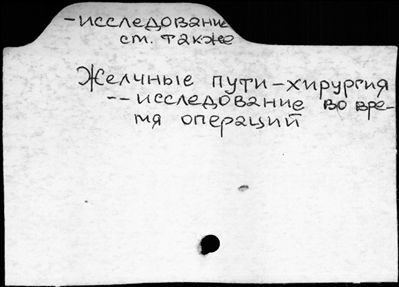 -исследование
см. также
Желчные пути-хирургия
--исследование во вре-
мя операций